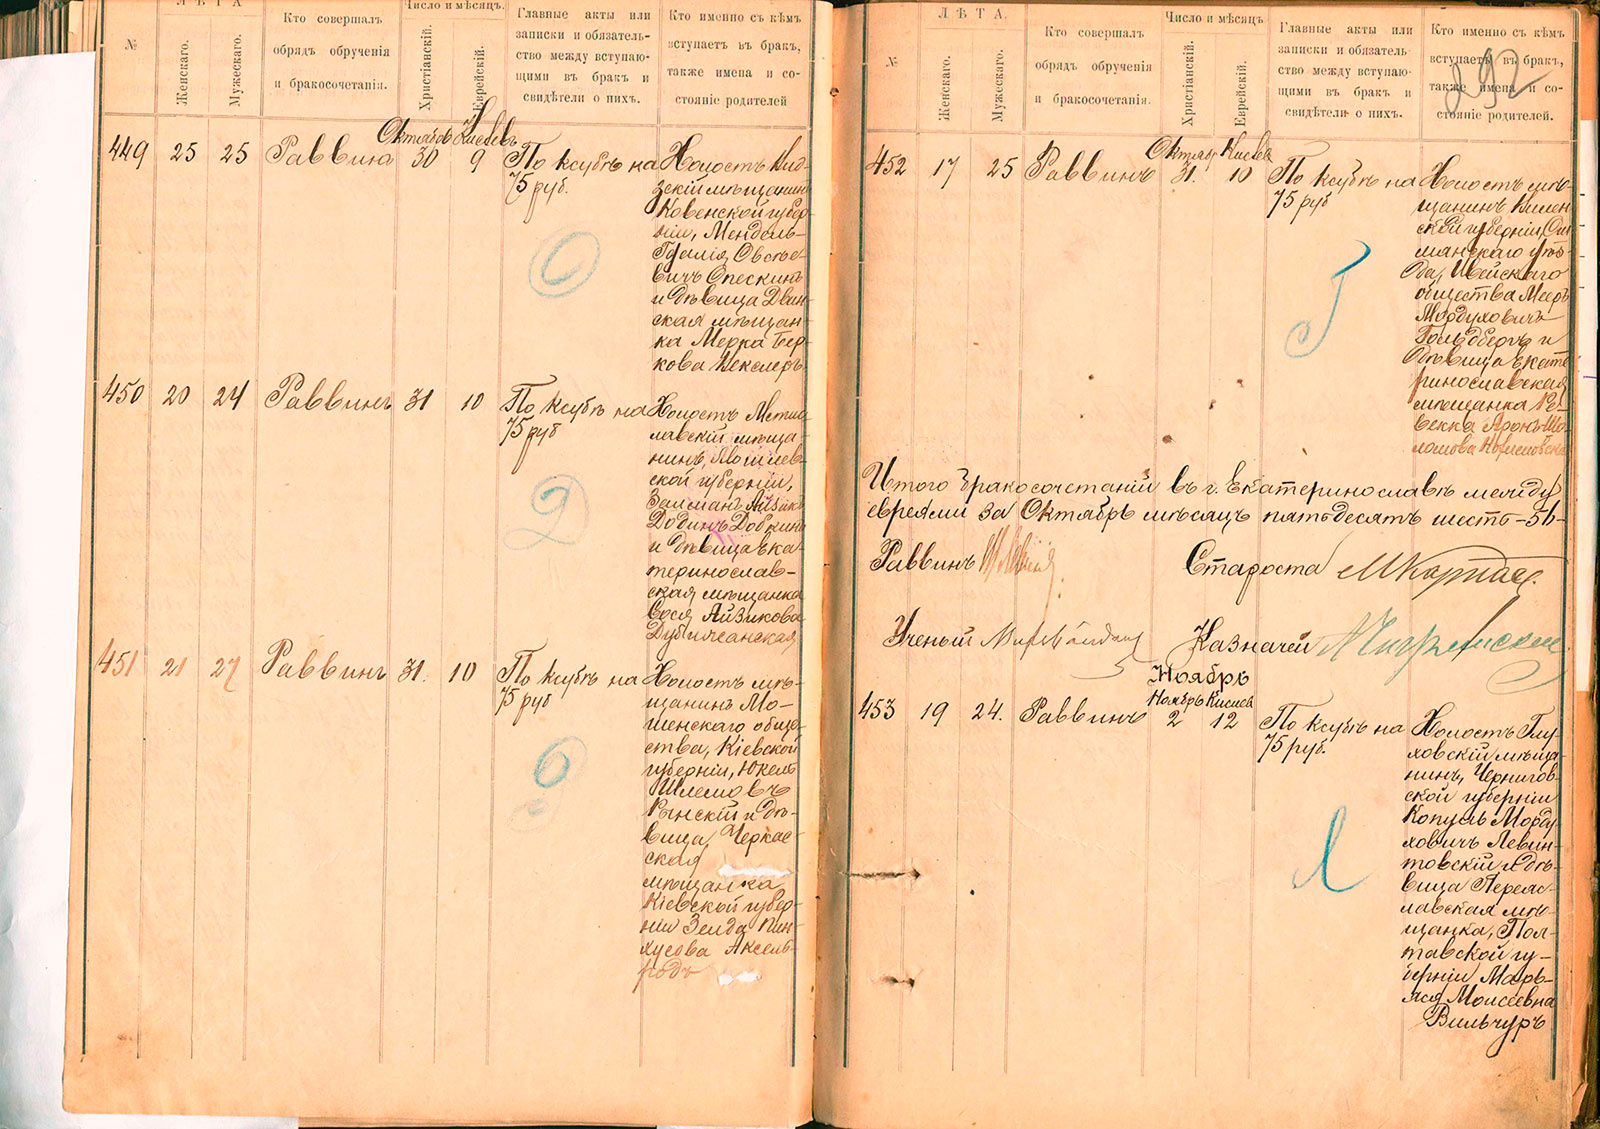 ЛѢТА
№
Женскаго.
Мужескаго.
Кто совершалъ
обрядъ обрученія
и бракосочетанія.
Число и мѣсяцъ.
Христіанскій.
Еврейскій.
Главные акты или
записки и обязатель-
ство между вступаю-
щими въ бракъ и
свидѣтели о нихъ.
Кто именно съ кѣмъ
вступаетъ въ бракъ,
также имена и со-
стояніе родителей
Октябрь Кислевъ
449 25 25 Раввинъ 30 9 По ксубѣ на
75 руб.
Холостъ Вид-
зскій мѣщанинъ
Ковенской губер-
ніи, Мендель-
Гдалія Овсѣе-
вичъ Опескинъ
и дѣвица Двин-
ская мѣщан-
ка Мерка Бер-
кова Векслеръ
450 20 24 Раввинъ 31 10 По ксубѣ на
75 руб
Холостъ Мстис-
лавскій мѣща-
нинъ, Могилев-
ской губерніи,
Залманъ Айзикъ
Додинъ Довкинъ
и дѣвица Ека-
теринослав-
ская мѣщанка
Сося Айзикова
451 21 27 Раввинъ 31. 10 По ксубѣ на
75 руб
Холостъ мѣ-
щанинъ Мо-
шенскаго общ-
ства, Кіевской
губерніи, Юкель
Шлемовъ
Рынскій и дѣ-
вица, Черкас-
ская
мѣщанка
Кіевской губер-
ніи Зелда Пин-
хусова Аксель-
родъ
ЛѢТА.
№
Женскаго.
Мужескаго.
Кто совершалъ
обрядъ обрученія
и бракосочетанія.
Число и мѣсяцъ.
Христіанскій.
Еврейскій.
Главные акты или
записки и обязатель-
ство между вступаю-
щими въ бракъ и
свидѣтели о нихъ.
Кто именно съ кѣмъ
вступаетъ въ бракъ,
также имена и со-
стояніе родителей.
292
Октябр Кислев
452 17 25 Раввинъ 31. 10 По ксубѣ на
75 руб
Холостъ мѣ-
щанинъ Вилен-
ской губерніи, Ош-
мянскаго уѣз-
да, Ивейскаго
общества Мееръ
Мордуховичъ
Гольдбергъ и
дѣвица Екате-
ринославская
мѣщанка Ре-
векка Аронъ Шо-
ломова
Итого бракосочетаній въ г. Екатеринославѣ между
евреями за Октябрь мѣсяцъ пятьдесятъ шесть -56-
Раввинъ
Староста М Карпас
Ученый
Казначей
Ноябрь
Ноябрь Кислев
453 19 24. Раввинъ 2 12 По ксубѣ на
75 руб.
Холостъ Глу-
ховскій мѣща-
нинъ, Чернигов-
ской губерніи
Копуль Морду-
ховичъ Левин-
товскій и дѣ-
вица Переяс-
лавская мѣ-
щанка, Пол-
тавской гу-
берніи Марь-
яся Моисеевна
Вильчуръ